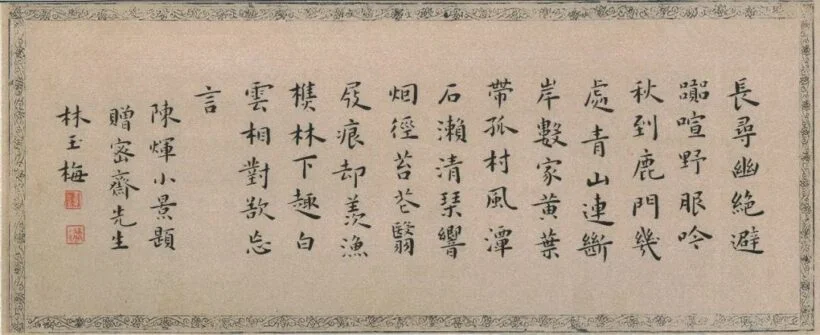 長尋幽絕避
喧野服吟
秋到鹿門幾
處青山連斷
岸數家黃葉
帶孤村風潭
石瀨清琹響
烟徑苔花翳
屐痕却羨漁
樵林下趣白
雲相對欲忘
言
陳煇小景題
贈密齋先生
林玉梅